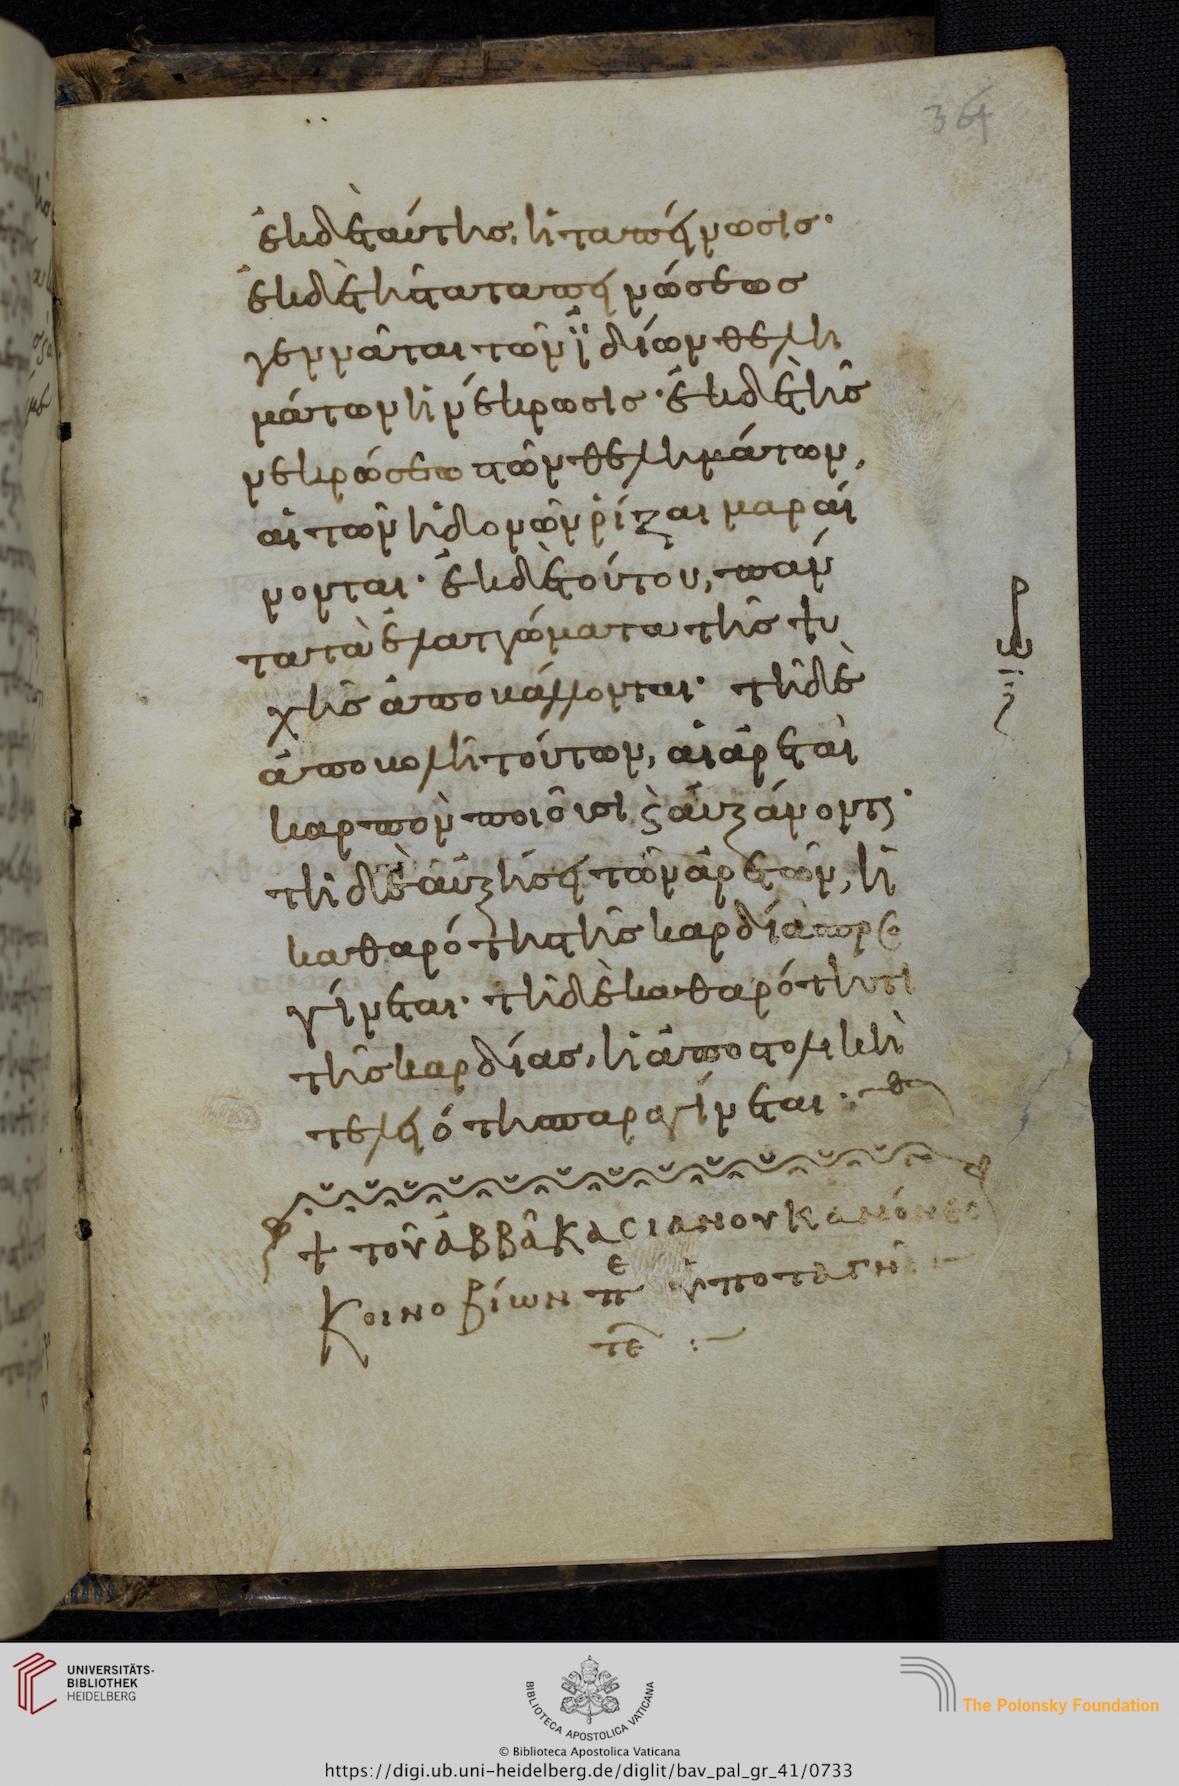 364
ἐκ δὲ ταύτης, ἡ ταπείνωσις·
ἐκ δὲ τῆς ταπεινώσεως
γεννᾶται τῶν ἰδίων θελη
μάτων ἡ νέκρωσις· ἐκ δὲ τῆς
νεκρώσεως τῶν θελημάτων,
αἱ τῶν ἡδονῶν ῥίζαι μαραί
νονται· ἐκ δὲ τούτου, πάν
τα τὰ ἐλαττώματα τῆς ψυ
χῆς ἀποβάλλονται· τῇ δὲ
ἀποβολῇ τούτων, αἱ ἀρεταὶ
καρπὸν ποιοῦσι ϗ αὐξάνονται·
τῇ δὲ αὐξήσει τῶν ἀρετῶν, ἡ
καθαρότης τῆς καρδίας
γίνεται· τῇ δὲ καθαρότητι
τῆς καρδίας, ἡ ἀποστολικὴ
τελειότης παραγίνεται:
+ τοῦ ἀββᾶ Κασιανοῦ κανόνες
Κοινοβίων
UNIVERSITÄTS-
BIBLIOTHEK
HEIDELBERG
BIBLIOTECA APOSTOLICA VATICANA
The Polonsky Foundation
© Biblioteca Apostolica Vaticana
https://digi.ub.uni-heidelberg.de/diglit/bav_pal_gr_41/0733